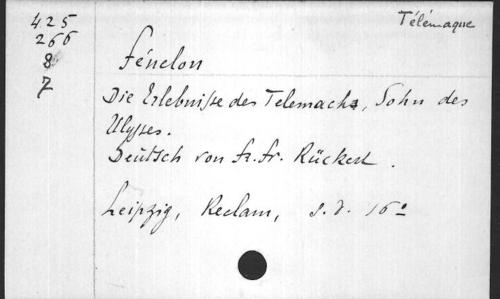 425
266
8
7
Télémaque
Fénelon
Die Erlebnisse des Telemachs, Sohn des
Ulysses.
Deutsch von Fr. Fr. Rückert.
Leipzig, Reclam, s. d. 16º